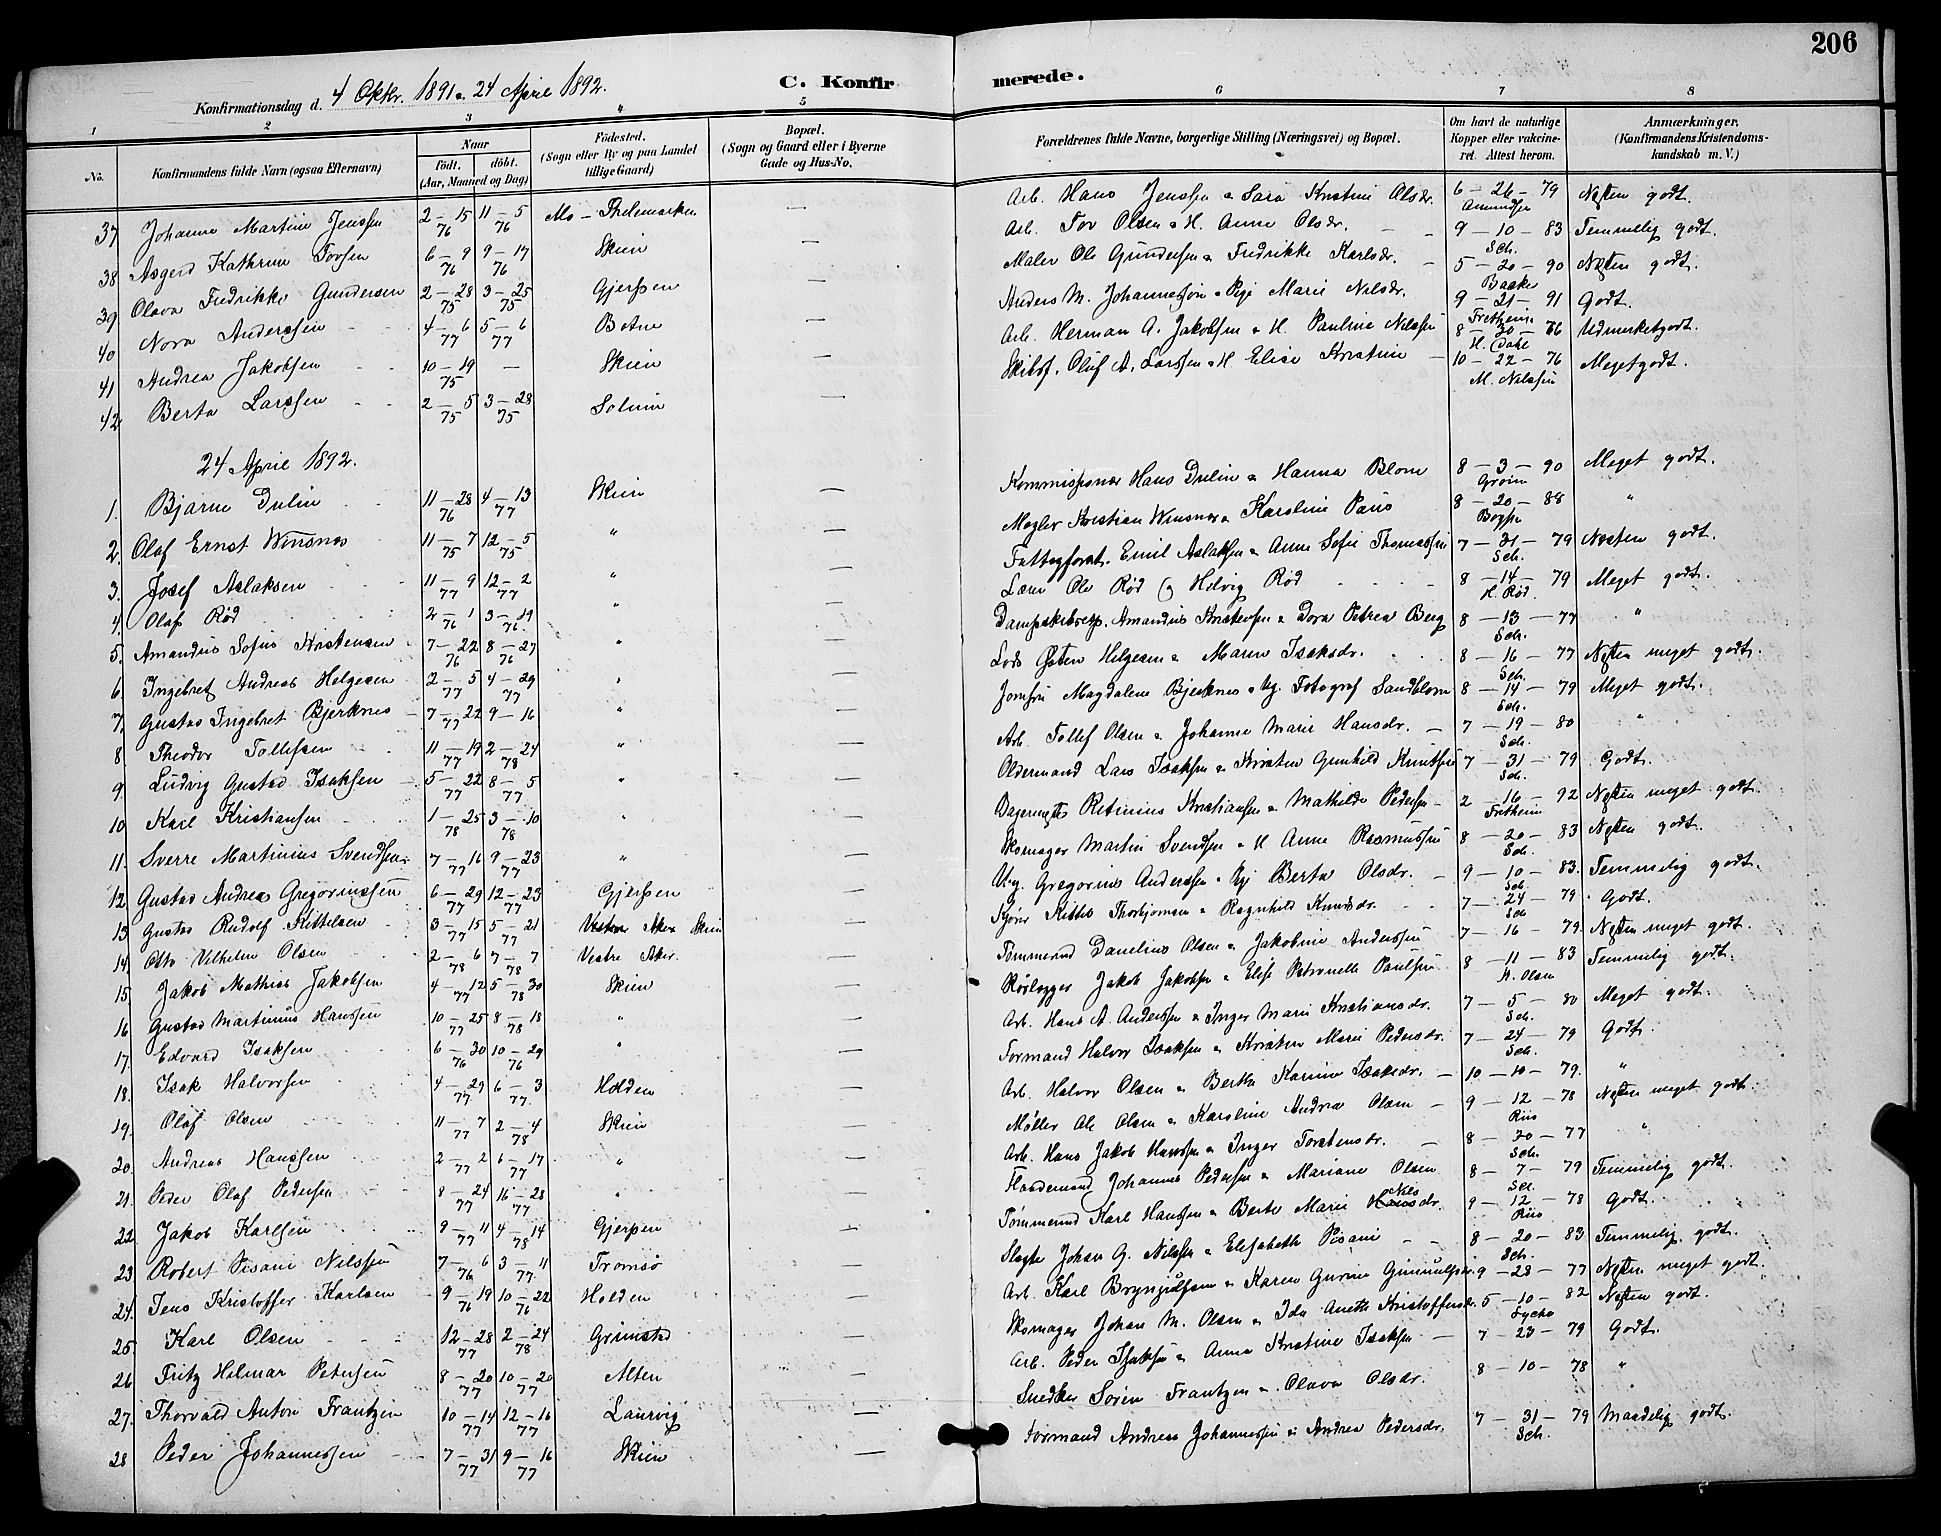 206
C. Konfirmerede.
Konfirmationsdag d. 4 Oktbr. 1891 & 24 April 1892.
1 2 3 4 5 6 7 8
No. Konfirmandens fulde Navn (ogsaa Efternavn) Naar født. døbt. (Aar, Maaned og Dag) Fødested. (Sogn eller By og paa Landet tillige Gaard) Bopæl. (Sogn og Gaard eller i Byerne Gade og Hus-No. Forældrenes fulde Navne, borgerlige Stilling (Næringsvei) og Bopæl. Om havt de naturlige Kopper eller vakcineret. Attest herom. Anmærkninger. (Konfirmandens Kristendomskundskab m. V.)
37 Johanne Martine Jenssen 2-15 76 11-5 76 Mo - Thelemarken — Arb. Hans Jenssen & Sara Kristine Olsdr. 6-26-79 Amundsen Næsten godt.
38 Asgerd Kathrine Torsen 6-9 76 9-17 76 Skien — Arb. Tor Olsen & H. Anne Olsdr. 9-10-83 Sch. Temmelig godt.
39 Olava Fredrikke Gundersen 2-28 75 3-25 75 Gjerpen — Maler Ole Gundersen & Fredrikke Karlsdr. 5-20-90 Baake Næsten godt.
40 Nora Anderssen 4-6 77 5-6 77 Botne — Anders M. Johannessøn & Pige Marie Nilsdr. 9-21-91 Fretheim Godt.
41 Andrea Jakobsen 10-19 75 — Skien — Arb. Herman A. Jakobsen & H. Pauline Nilssen 8-30-76 H. Dahl Udmerketgodt.
42 Berta Larssen 2-5 75 3-28 75 Solum — Skibsf. Oluf A. Larssen & H. Elise Kristine 10-22-76 M. Nilssen Megetgodt.
24 April 1892.
1. Bjarne Dulin 11-28 76 4-13 77 Skien — Kommissionær Hans Dulin & Hanna Blom 8-3-90 Meget godt.
2. Olaf Ernst Winsnes 11-7 75 12-5 75 " — Mægler Kristian Winsnes & Karoline Paus 8-20-88 "
3. Josef Aslaksen 11-9 77 12-2 77 " — Fattigforst. Emil Aslaksen & Anne Sofie Thomassen 7-31-79 Sch. Næsten godt.
4. Olaf Rød 2-1 76 3-19 76 " — Ole Rød og Helvig Rød 8-14-79 H. Rød. Meget godt.
5. Amandus Sofus Kristensen 7-22 76 8-27 76 " — Amandus Kristensen & Dora Petrea Berg 8-13-77 Sch. "
6. Ingebret Andreas Helgesen 2-5 77 4-29 77 " — Lods Østen Helgesen & Maren Isaksdr. 8-16-77 Sch. Næsten meget godt.
7. Gustav Ingebret Bjerknes 7-22 77 9-16 " — Jomfru Magdalene Bjerknes & Ug. Fotograf Sandblom 8-14-79 Sch. Meget godt.
8 Theodor Tollefsen 11-19 77 2-24 78 " — Arb. Tollef Olsen & Johanne Marie Hansdr. 7-19-80 Sch. "
9 Ludvig Gustav Isaksen 5-22 77 8-5 77 " — Oldermand Lars Isaksen & Kirsten Gunhild Knutsen 7-31-79 Sch. Godt.
10 Karl Kristiansen 1-25 78 3-10 78 " — Kristiansen & Mathilde Pedersen 2-16-92 Fretheim Næsten meget godt.
11. Sverre Martinius Svendsen 7-16 77 9-23 77 " — Skomager Martin Svendsen & H Anne Rasmussen 8-20-83 Sch. Næsten godt.
12 Gustav Andreas Gregoriussen 6-29 77 12-23 77 Gjerpen — Ung. Gregorius Anderssen & Pige Berta Olsdr. 9-10-83. Sch. Temmelig godt.
13 Gustav Rudolf Kittelsen 3-15 77 5-21 77 Vestre Aker Skien — Kjører Kittel Thorbjørnsen & Ragnhild Knudsdr. 7-24-79 Sch Godt.
14. Otto Vilhelm Olsen 2-6 78 7-7 78 Vestre Aker. — Tømmermd Danelius Olsen & Jakobine Anderssen 7-16-79. Næsten meget godt.
15 Jakob Mathias Jakobsen 4-12 77 5-30 78 Skien — Rørlægger Jakob Jakobsen & Elise Petronelle Paulsen 8-11-83 H. Olsen Temmelig godt.
16 Gustav Martinius Hanssen 10-25 77 8-18 78 " — Arb. Hans A. Anderssen & Inger Marie Kristiansdr. 7-5-80 Sch. Meget godt.
17. Edvard Isaksen 6-30 76 10-29 76 " — Formand Halvor Isaksen & Kristen Marie Pedersdr. 7-24-79 Sch. Godt.
18. Isak Halvorsen 4-29 77 6-3 77. Holden — Arb. Halvor Olsen & Berthe Karine Isaksdr. 10-10-79. "
19. Olaf Olsen 11-7 77 2-4 78 Skien — Møller Ole Olsen & Karoline Andrea Olsen 9-12-78 Riis Næsten meget godt.
20. Andreas Hanssen 2-2 77 6-17 77 " — Arb. Hans Jakob Hanssen & Inger Torstensdr. 8-20-77 Sch. "
21. Peder Olaf Pedersen 8-24 77 16-28 77 " — Flaademand Johannes Pedersen & Mariane Olsen 8-7-79 Sch. Temmelig godt.
22 Jakob Karlsen 9-11 77 4-14 78 Gjerpen — Tømmermd Karl Hanssen & Berte Marie Nilsdr. 9-12-78 Riis Godt.
23 Robert Pisani Nilssen 7-6 76 3-11 77. Tromsø — Johan G. Nilssen & Elisabeth Pisani 8-20-83 Sch. Temmelig godt.
24. Jens Kristoffer Karlsen 9-19 76 10-22 76 Holden — Arb. Karl Brynjulfsen & Karen Gurine Gunnulfsdr. 9-28-77 Næsten meget godt.
25 Karl Olsen 12-28 77 2-24 78 Grimstad — Skomager Johan M. Olsen & Ida Anette Kristoffersdr. 5-10-82 Lycke Næsten godt.
26 Fritz Hilmar Petersen 8-20 77 10-20 77 Alten — Arb. Peder Isaksen & Anna Kristine Isaksen 7-23-79 Godt.
27. Thorvald Anton Frantzen 10-14 77 12-16 77 Laurvig — Snedker Søren Frantzen & Olava Olsdr. 8-10-78 "
28 Peder Johannessen 7-31 77 9-16 77 Skien — Formand Andreas Johannessen & Andrea Pedersdr. 7-31-79 Sch. Maadelig godt.